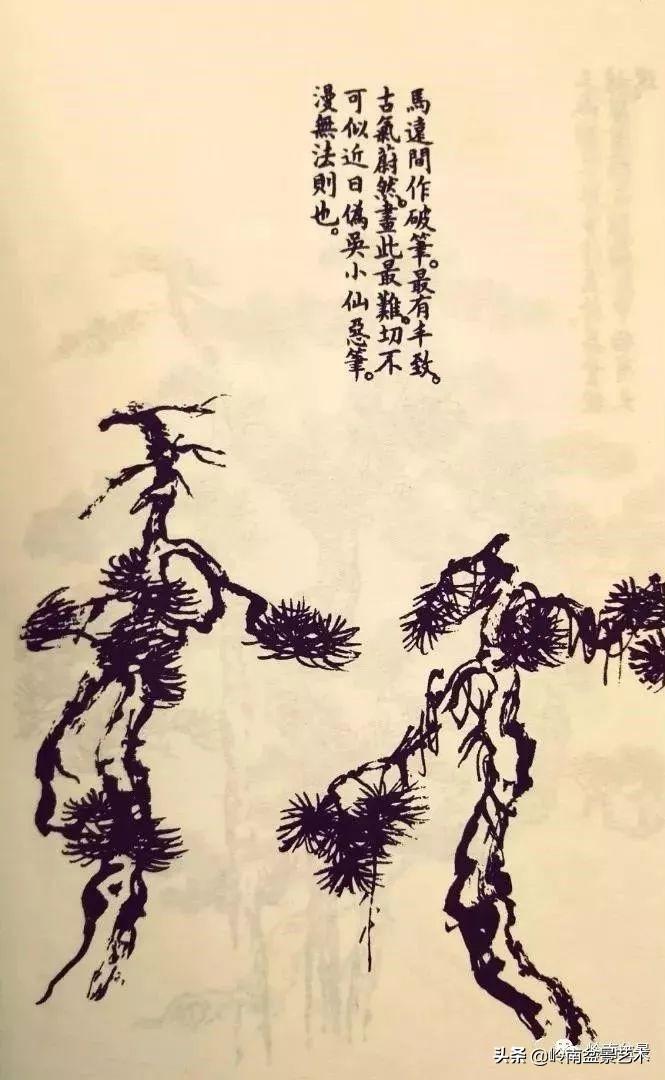 馬遠間作破筆。最有丰致。
古氣蔚然。畫此最難。切不
可似近日偽吳小仙惡筆。
漫無法則也。
头条 @岭南盆景艺术